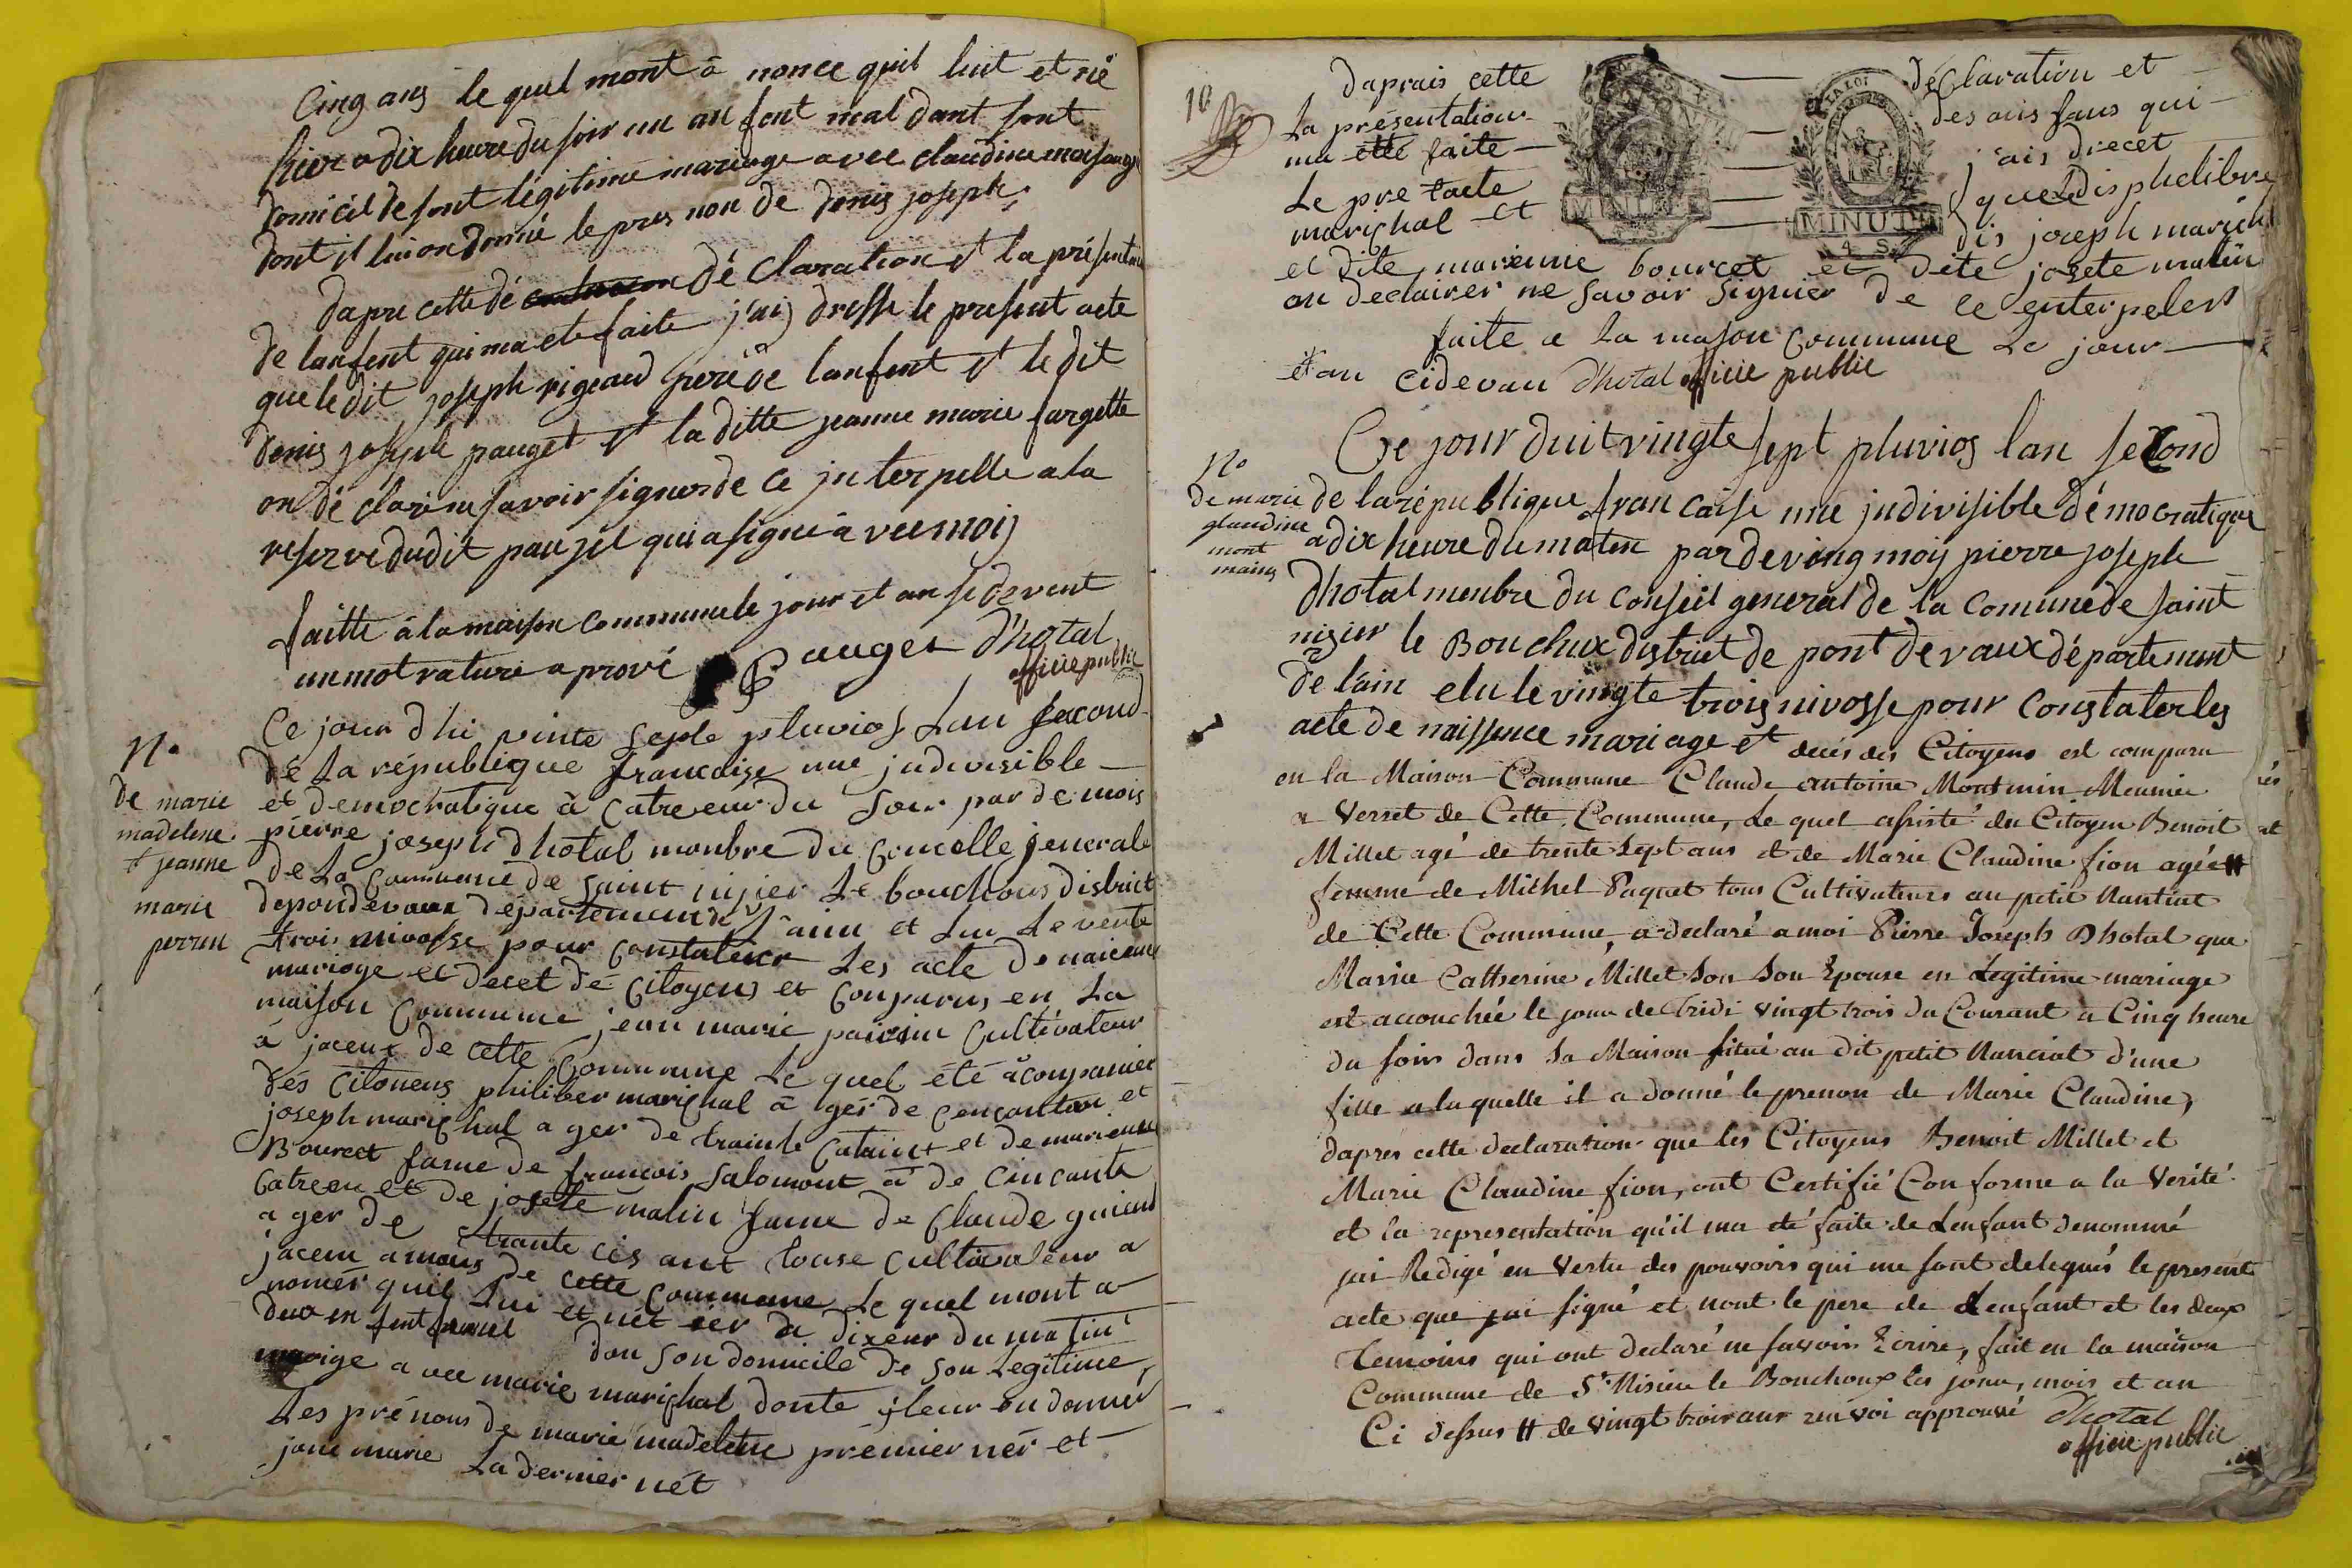 Cinq ans le quel mont a nonce quil luit et né
hier a dix heure du soir un an fent mal dant sont
domicil de sont légitime mariage avec claudine
dont il lui on donné le pres non de denis joseph
dapre cette dé declaration et la présentation
de lanfent qui ma ete faite j'aij dresse le present acte
que le dit joseph rigeaud pere de lanfent et le dit
denis joseph pauget et la ditte jeanne marie fargette
on dé claré ne savoir signer de ce jnterpelle a la
reserve du dit pauget qui a signé a vec moij
faitte à la maison commune le jour et an si devent
un mot rature a prové Pauget d'hotal
officie public
N°
de marie
madelene
et jeanne
marie
perrin
Ce jour d hi vinte septe pluvios Lan second
dé La république francaise une judivisible
et democratique à catre eur du soir par de mois
pierre joseph dhotal monbre du concelle jenerale
de La commune de saint nijier Le bouchous district
depondevaux departement de l'ain et Lu Le vente
trois nivosse pour constateur Les acte de naicence
mariage et decet dé citoyens et conparus en La
maison commune jean marie pairin cultivateur
à jaceux de cette commune Le quel été àconpanier
des citoiiens philiber marichal à gér de cencantan et
joseph marichal a ger de trainte catain+ et de marienne
Bourcet fame de francois salomont à de cincante
catreen et de josete matin fame de Claude guiend
a ger de trante cis ant touse cultivateur a
jaceu amous de cette commune Le quel mont a
nomér quil Lui et nét ier a dixeur du matin
deux en fent femel dan son domicile de son Legitime
mariage a vec marie marichal donte jleur on donner
Les prénons de marie madelene prémier nér et
jane marie La dernier nét
10
daprais cette déclaration et
La présentation des ans fans qui
ma etté faite j'ais drecet
Le pre tacte queledis phelibre
marichal et dis joseph marichal
et dite marienne bourcet et dete josete matin
on declairer ne savoir signier de ce enterpelers
faite a la mason commune Le jour
et an cidevan d'hotal officie public
LA LOI
MINUTE
MINUTE
4 S.
N°
de marie
glaudine
mont
mains
Ce jour duit vingte sept pluvios lan second
de la république francaise une jndivisible démocratique
a dix heure du matin par deving moij pierre joseph
dhotal menbre du conseil general de la comune de saint
nizier le Bouchux district de pont de vaux département
de l'ain elu le vingte trois nivosse pour constater les
acte de naissence mariage et decés des Citoyens est comparu
en la Maison Commune Claude antoine Montmin Meunier
a Verset de Cette Commune, Le quel assisté du Citoyen Benoit
Millet agé de trente sept ans et de Marie Claudine fion agée #
femme de Michel Paquet tous Cultivateurs au petit Nantiat
de Cette Commune, a declaré a moi Pierre Joseph Dhotal que
Marie Catherine Millet son son Epouse en Legitime mariage
est accouchée le jour de tridi vingt trois du Courant a Cinq heure
du soir dans sa Maison situé au dit petit Nanciat d'une
fille a la quelle il a donné le prenon de Marie Claudine,
dapres cette declaration que les Citoyens Benoit Millet et
Marie Claudine fion, ont Certifié Conforme a la Verité
et la representation qu'il ma été faite de Lenfant denommé
jai Redigé en Vertu des pouvoirs qui me sont delegués le present
acte que jai signé et nont le pere de Lenfant et les deux
temoins qui ont declaré ne savoir Ecrire, fait en la maison
Commune de St Nisier le Bouchoux les jour, mois et an
Ci dessus # de vingt trois ans renvoi approuvé d'hotal
officie public